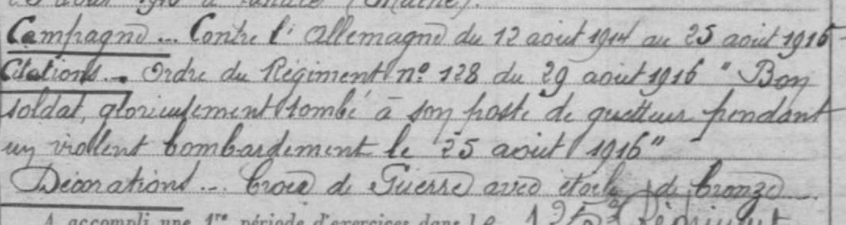 Campagne... Contre l'Allemagne du 12 aout 1914 au 25 aout 1916
Citations... Ordre du Régiment n° 128 du 29 aout 1916 "Bon
soldat, glorieusement tombé à son poste de guetteur pendant
un violent bombardement le 25 aout 1916"
Décorations... Croix de Guerre avec étoile de bronze
A accompli une 1re période d'exercices dans le Régiment